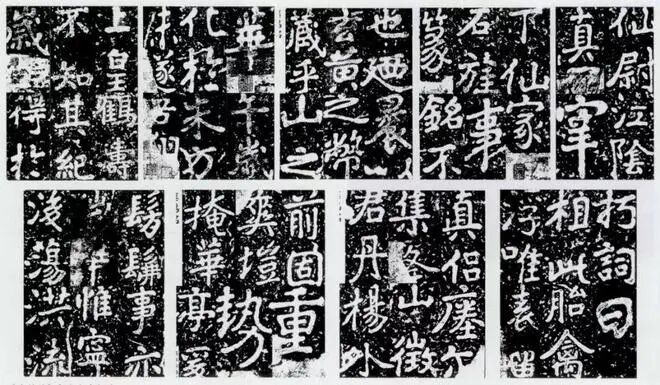 上皇鶴壽
不知其紀
歲得於
華午歲
化於朱方
未遂吾翔
也廼裹以
玄黃之幣
藏乎山之
下仙家
石旌事
篆銘不
仙尉江陰
真宰
髣髴事亦
惟寧
後蕩洪流
前固重
爽塏勢
掩華亭爰
真侣瘞尔
集山徵
君丹楊外
朽詞曰
相此胎禽
浮唯表留